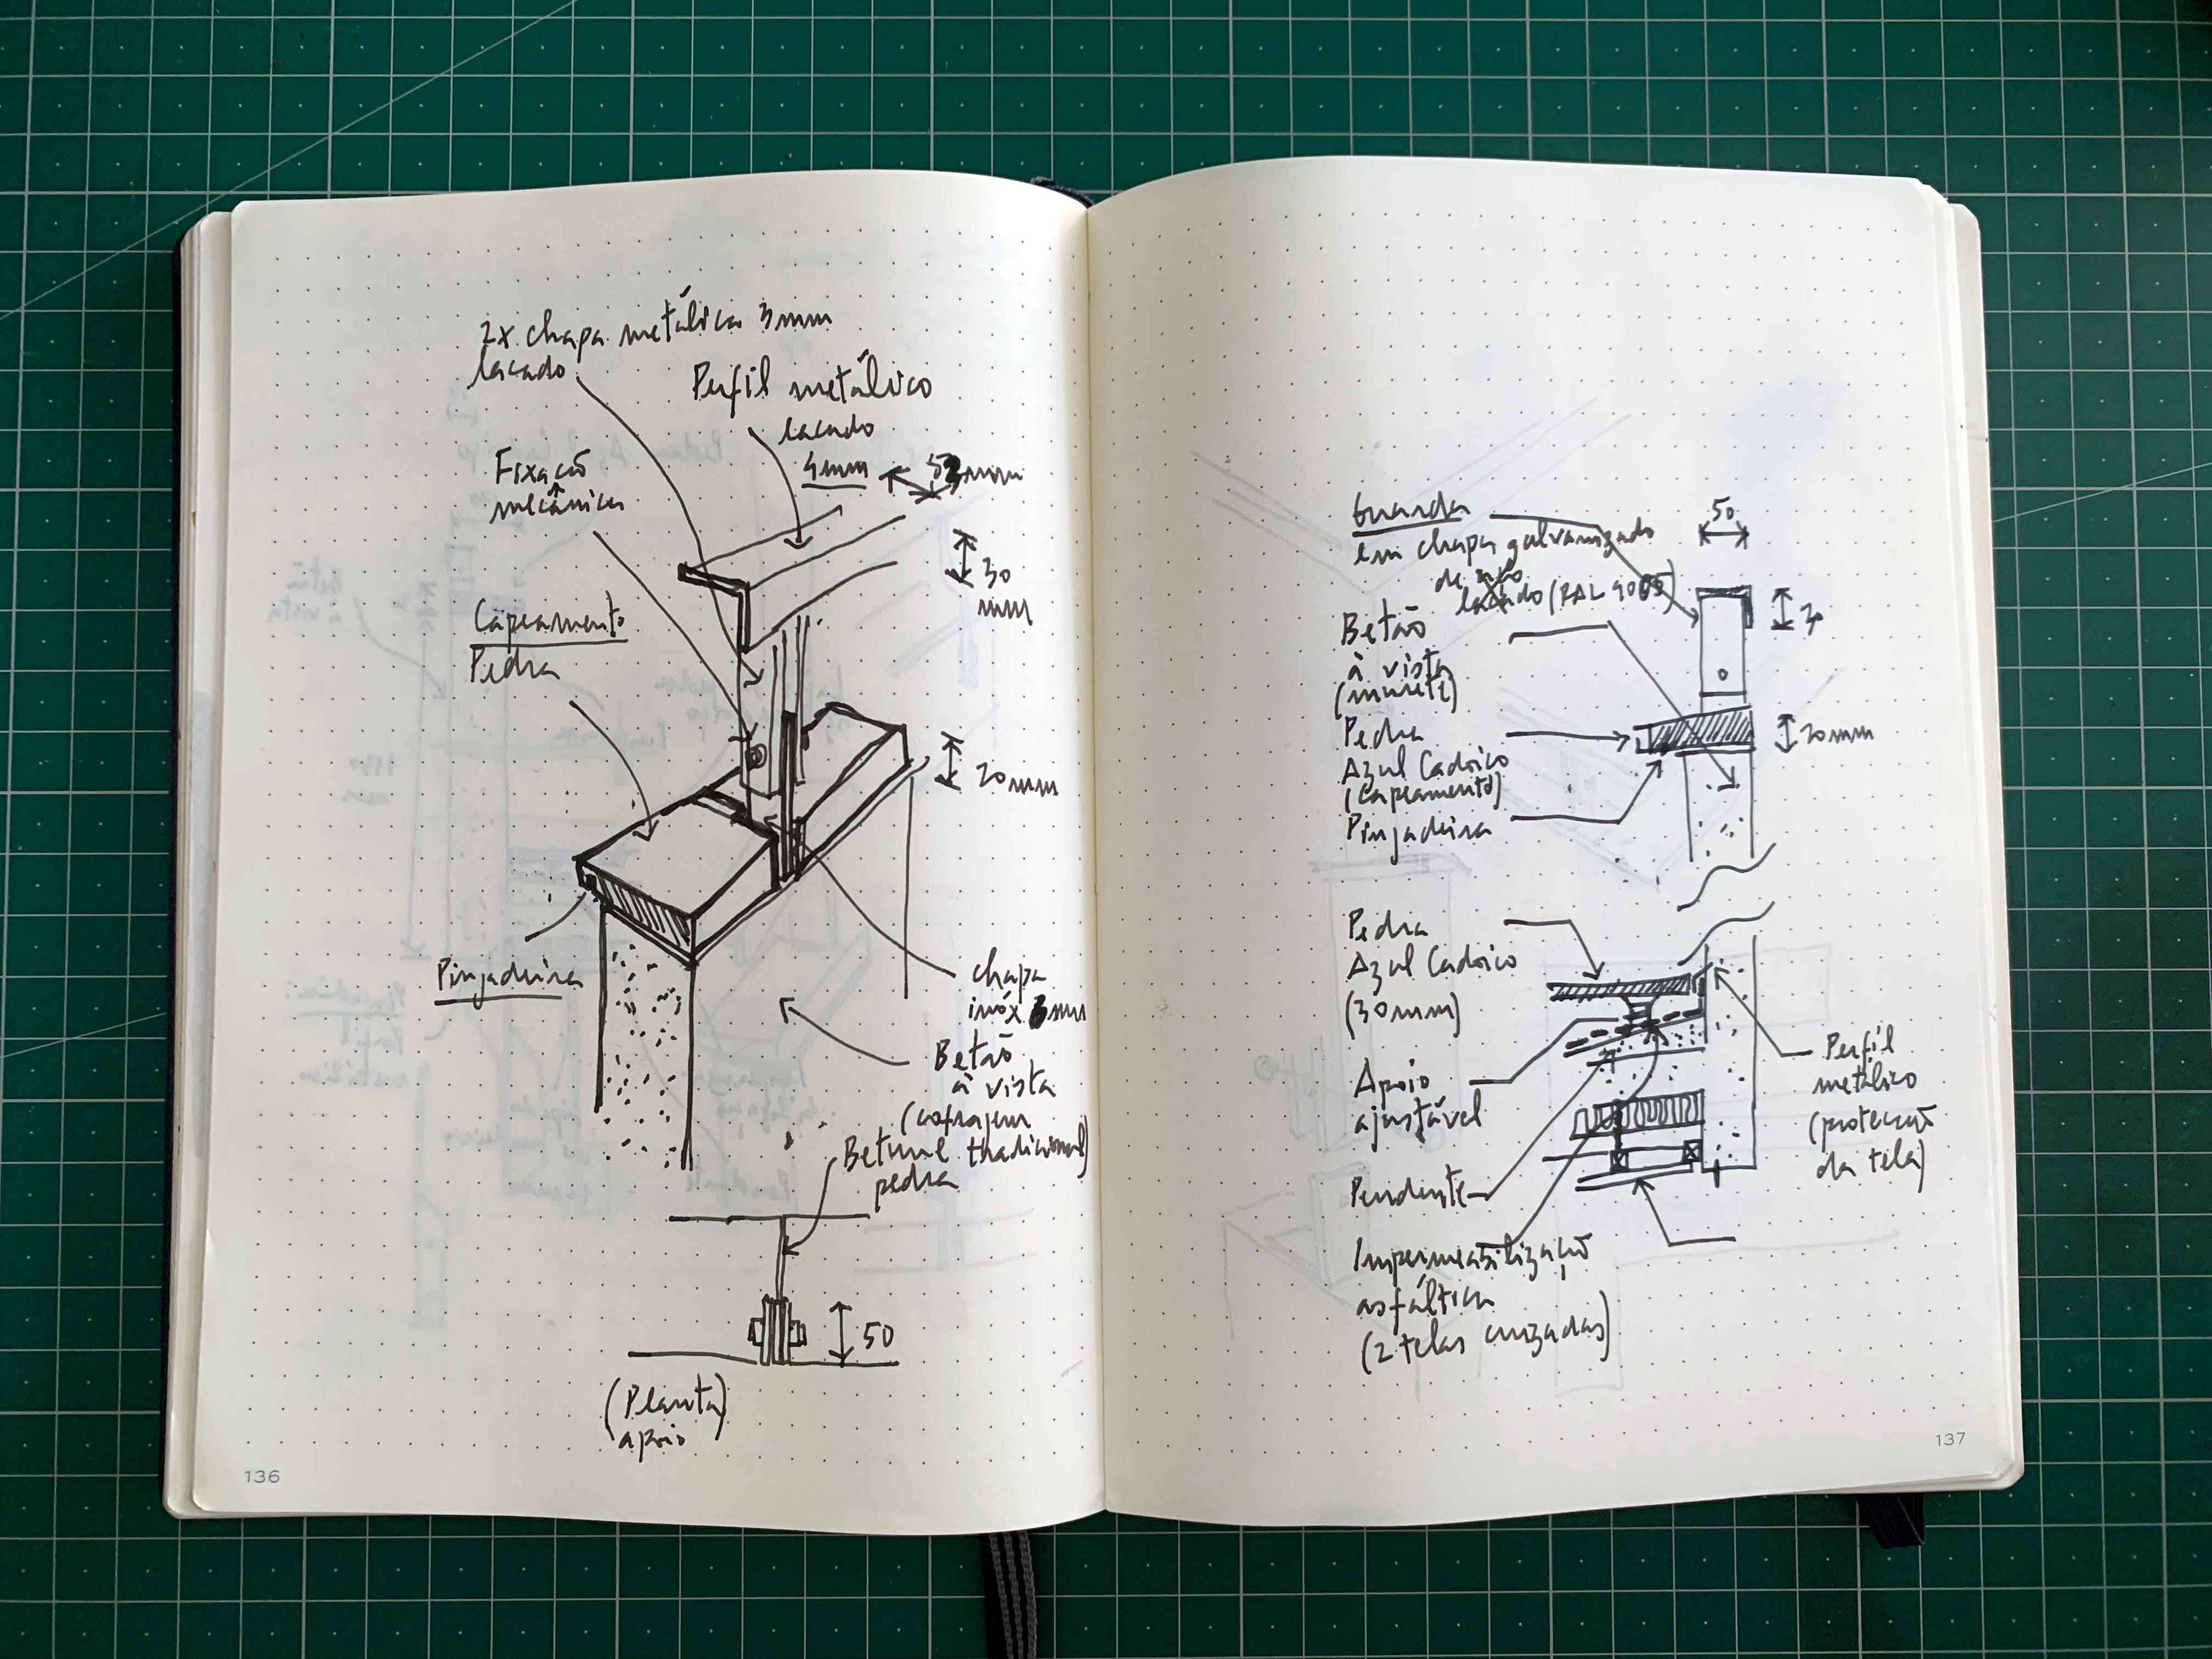 2x chapa metálica 3mm
lacado
Perfil metálico
lacado
4mm
Fixação
mecânica
30
mm
Capeamento
Pedra
20mm
Pingadeira
chapa
inóx mm
Betão
à vista
(cofragem
tradicional)
Betume
pedra
50
(Planta)
apoio
136
Guarda
em chapa galvanizado
de
lacado (RAL 9005)
50
Betão
à vista
(murete)
Pedra
Azul Cadoiço
(capeamento)
Pingadeira
20mm
Pedra
Azul Cadoiço
(30mm)
Apoio
ajustável
Pendente
Impermeabilização
asfáltica
(2 telas cruzadas)
Perfil
metálico
(protecção
da tela)
137